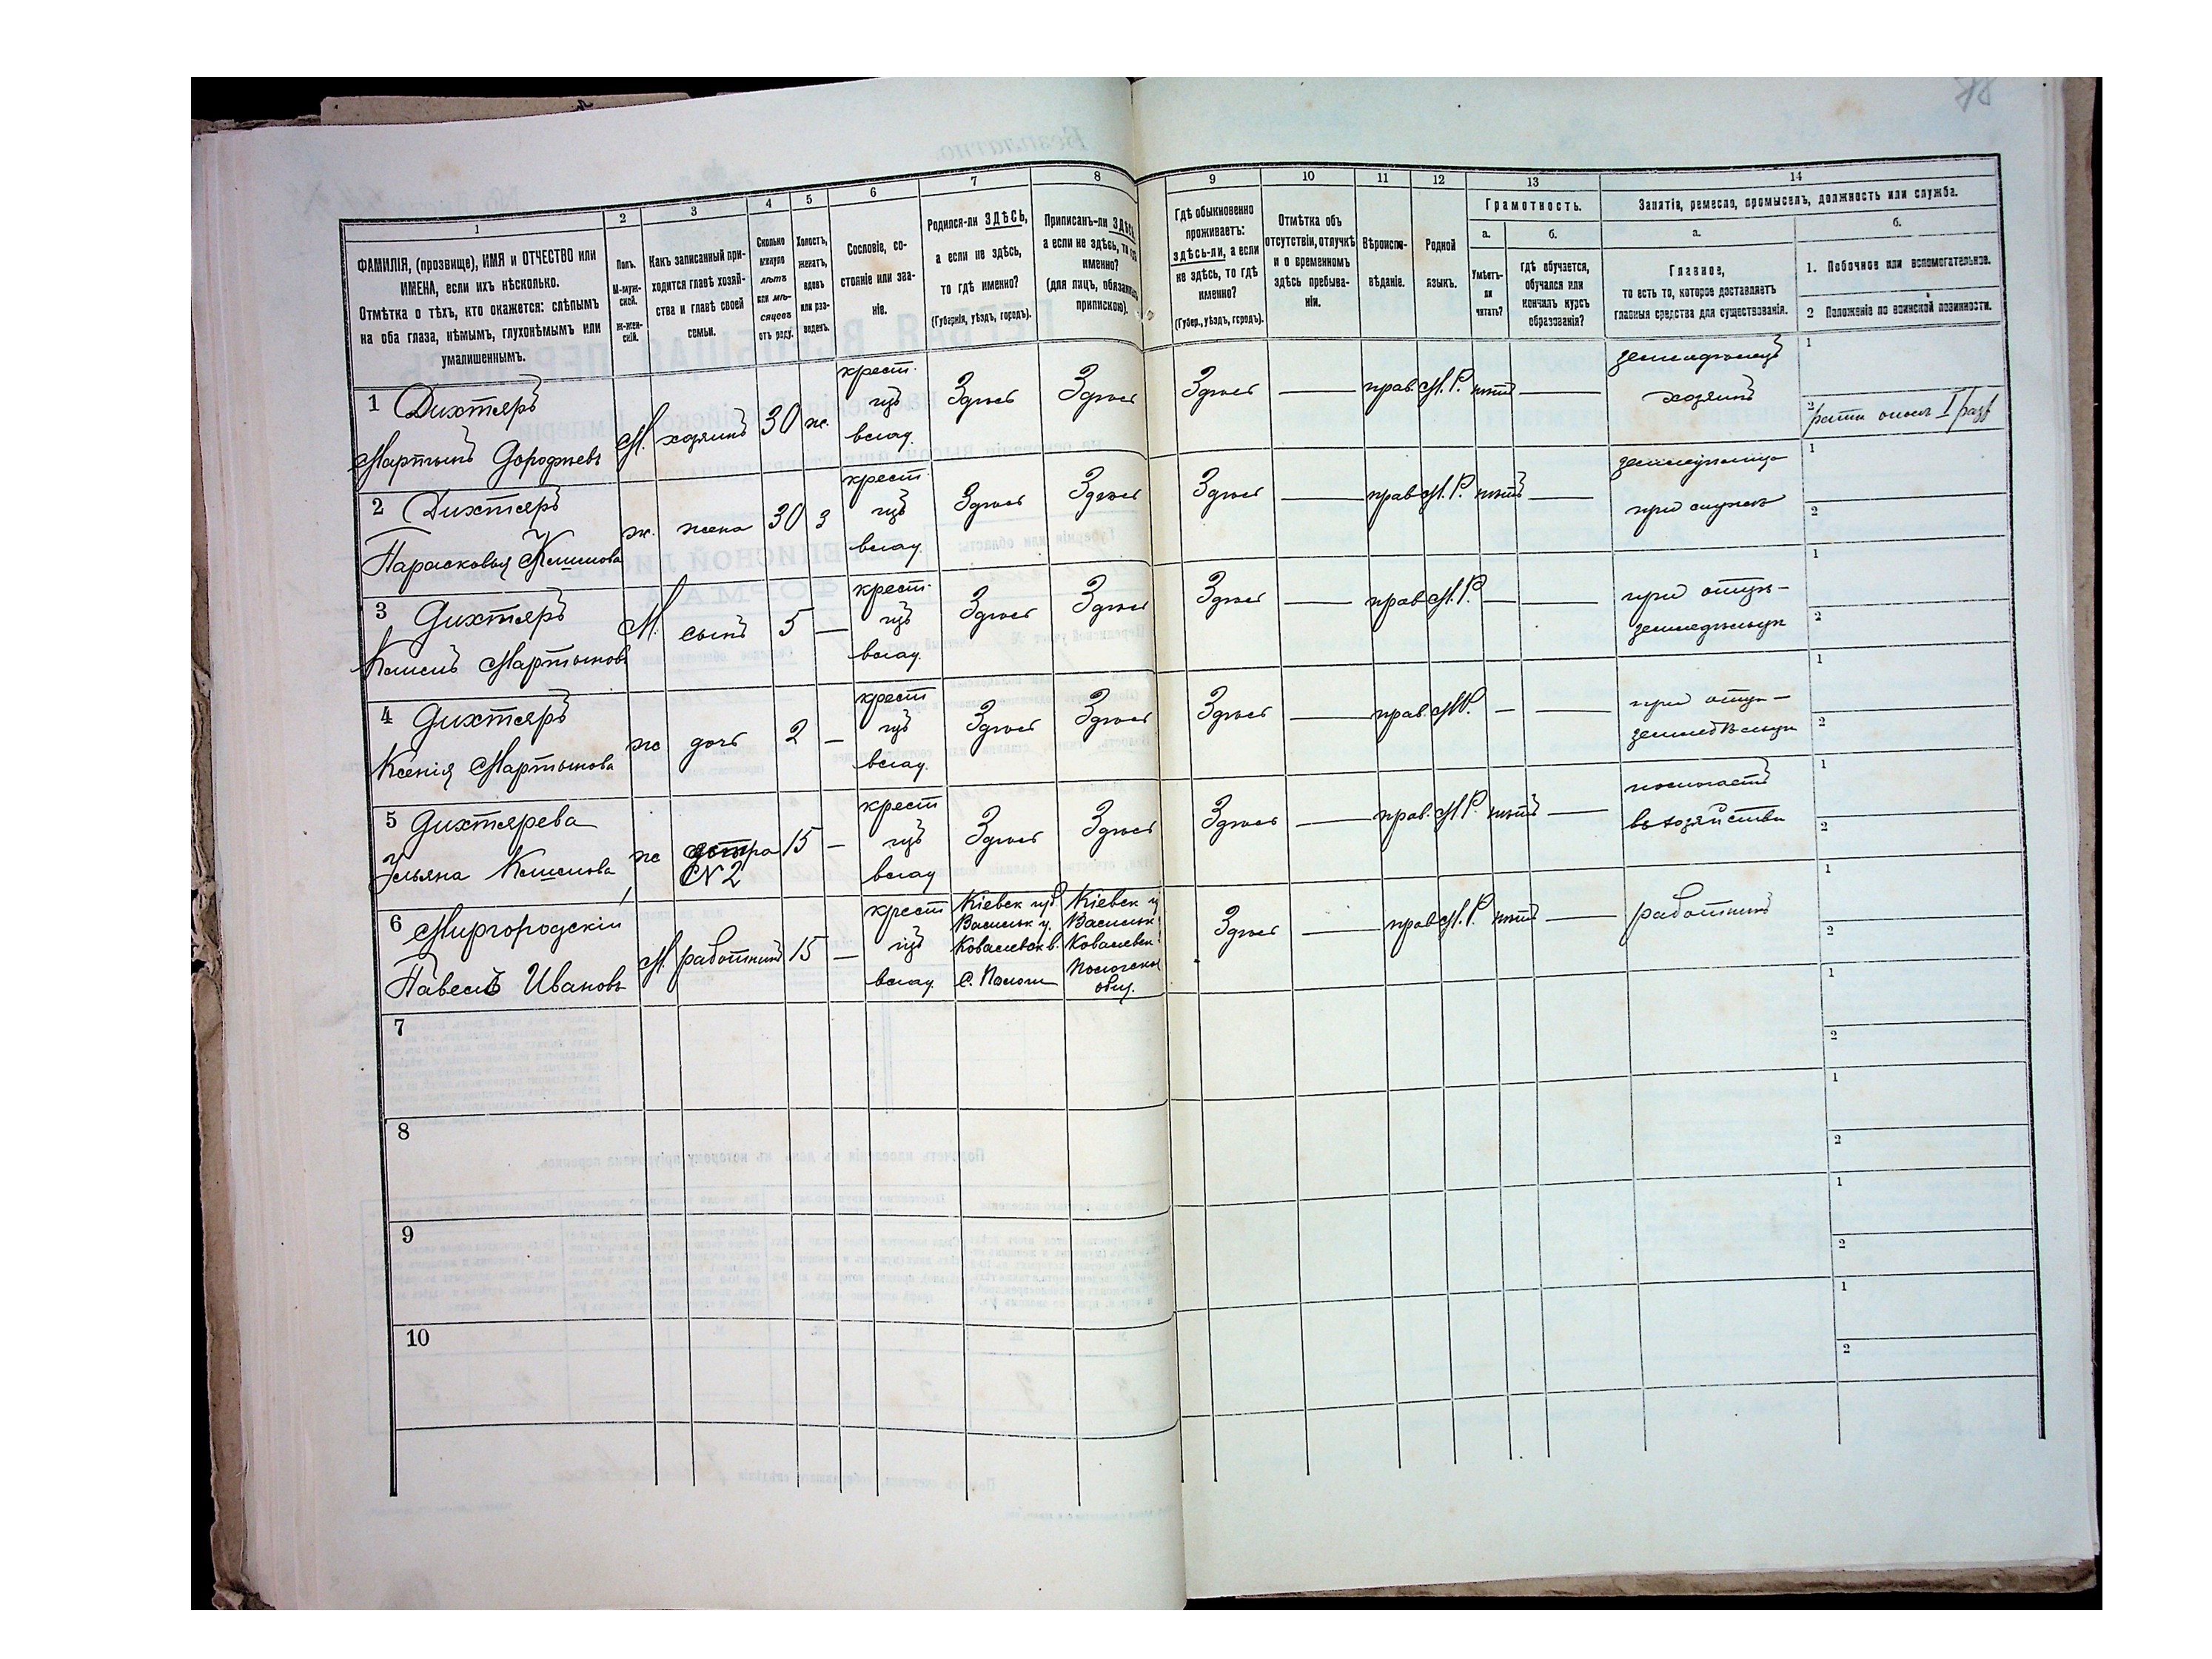 78
1 2 3 4 5 6 7 8 9 10 11 12 13 14
ФАМИЛІЯ, (прозвище), ИМЯ и ОТЧЕСТВО или ИМЕНА, если ихъ нѣсколько.
Отмѣтка о тѣхъ, кто окажется: слѣпымъ на оба глаза, нѣмымъ, глухонѣмымъ или умалишеннымъ.
Полъ. М-мужской. Ж-женскій.
Какъ записанный приходится главѣ хозяйства и главѣ своей семьи.
Сколько минуло лѣтъ или мѣсяцевъ отъ роду.
Холостъ, женатъ, вдовъ или разведенъ.
Сословіе, состояніе или званіе.
Родился-ли ЗДѢСЬ, а если не здѣсь, то гдѣ именно?
(Губернія, уѣздъ, городъ).
Приписанъ-ли ЗДѢСЬ, а если не здѣсь, то гдѣ именно?
(для лицъ, обязанныхъ припискою).
Гдѣ обыкновенно проживаетъ: здѣсь-ли, а если не здѣсь, то гдѣ именно?
(Губер., уѣздъ, городъ).
Отмѣтка объ отсутствіи, отлучкѣ и о временномъ здѣсь пребываніи.
Вѣроисповѣданіе.
Родной языкъ.
Грамотность.
а. Умѣетъ-ли читать?
б. гдѣ обучается, обучался или кончилъ курсъ образованія?
Занятіе, ремесло, промыселъ, должность или служба.
а. Главное,
то есть то, которое доставляетъ главныя средства для существованія.
б.
1. Побочное или вспомогательное.
2 Положеніе по воинской повинности.
1 Дихтяръ
Мартынъ Дорофѣевъ М. хозяинъ 30 ж. крест. влад. Здѣсь Здѣсь Здѣсь — прав. М.Р. нѣтъ — земледѣлецъ хозяинъ
1
2 I разр
2 Дихтяръ
Парасковья Климова ж. жена 30 з крест. влад. Здѣсь Здѣсь Здѣсь — прав. М.Р. нѣтъ — при мужѣ
1
2
3 Дихтяръ
Климъ Мартыновъ М. сынъ 5 — крест. влад. Здѣсь Здѣсь Здѣсь — прав. М.Р. — — при отцѣ— земледѣльцѣ
1
2
4 Дихтяръ
Ксенія Мартынова ж дочь 2 — крест влад. Здѣсь Здѣсь Здѣсь — прав. М.Р. — — при отцѣ— земледѣльцѣ
1
2
5 Дихтярева
Ульяна Климова ж сестра №2 15 — крест влад Здѣсь Здѣсь Здѣсь — прав. М.Р. нѣтъ — помогаетъ въ хозяйствѣ
1
2
6 Миргородскій
Павелъ Ивановъ М. работникъ 15 — крест влад. Кіевск губ Васильк у. Ковалевск в. С. Пологи Кіевск г Васильк Ковалевск Пологское общ. Здѣсь — прав. М.Р. нѣтъ — работникъ
1
2
7
1
2
8
1
2
9
1
2
10
1
2